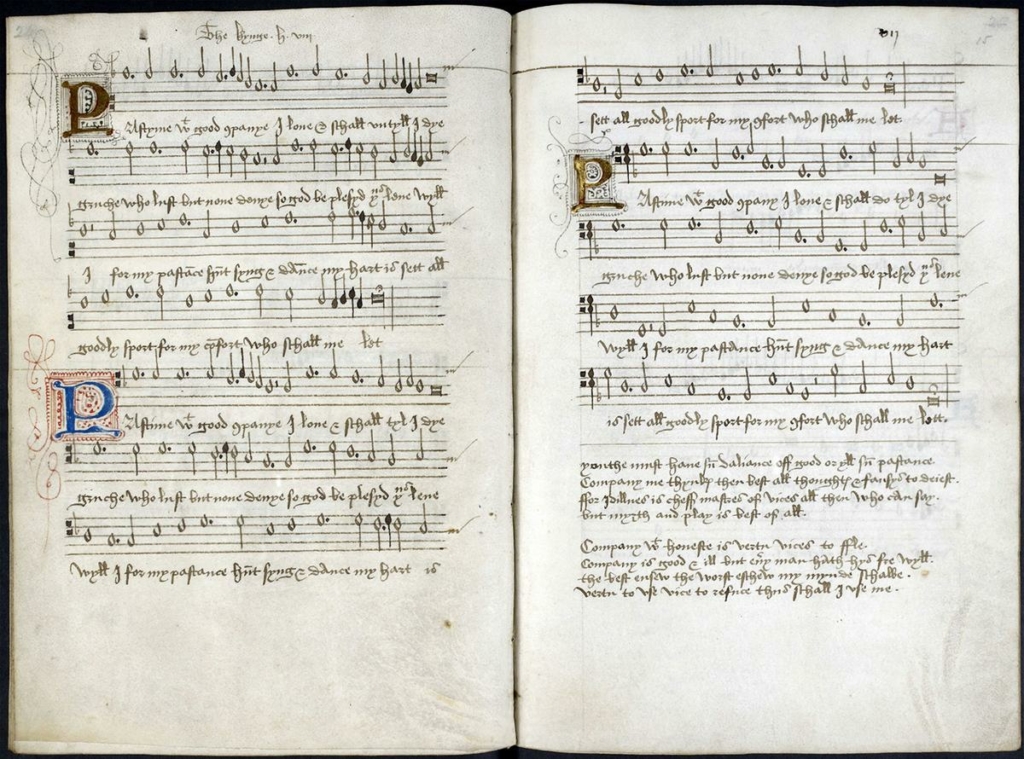 The kynge .h. viii
PAstyme wt good ꝯpanye I loue & schall vntyll I dye
gruche who lust but none denye so god be plesyd yus leue wyll
I for my pastāce hūt syng & dāce my hart is sett all
goodly sport for my cōfort who schall me let
PAstyme wt good ꝯpanye I loue & schall tyl I dye
gruche who lust but none denye so god be plesyd yus leue
wyll I for my pastance hūt syng & dance my hart is
sett all goodly sport for my ꝯfort who schall me let
PAstyme wt good ꝯpany I loue & schall do tyl I dye
gruche who lust but none denye so god be plesyd yus leue
wyll I for my pastance hūt syng & dance my hart
is sett all goodly sport for my ꝯfort who schall me lett.
youthe must haue sū daliance off good or yll sū pastance.
Company me thynkꝭ then best all thoughtꝭ & fansys to deiest.
ffor Idillnes is cheff mastres of vices all then who can say.
but myrth and play is best of all.
Company wt honeste is vertu vices to ffle.
Company is good & ill but eūy man hath hys fre wyll.
the best ensew the worst eschew my mynde schalbe.
vertu to vse vice to refuce thus schall I vse me.